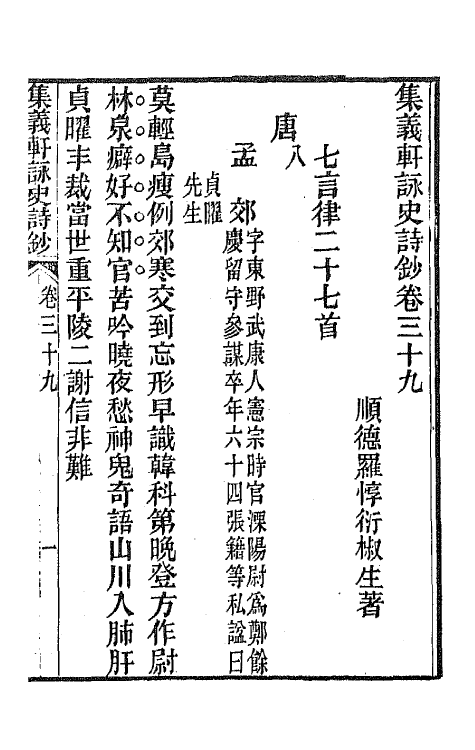 集義軒詠史詩鈔卷三十九
順德羅惇衍椒生著
七言律二十七首
唐八
孟郊字東野武康人憲宗時官溧陽尉為鄭餘
慶留守參謀卒年六十四張籍等私諡曰
貞曜
先生
莫輕島瘦例郊寒交到忘形早識韓科第晚登方作尉
林泉癖好不知官苦吟曉夜愁神鬼奇語山川入肺肝
貞曜丰裁當世重平陵二謝信非難
集義軒詠史詩鈔 卷三十九 一